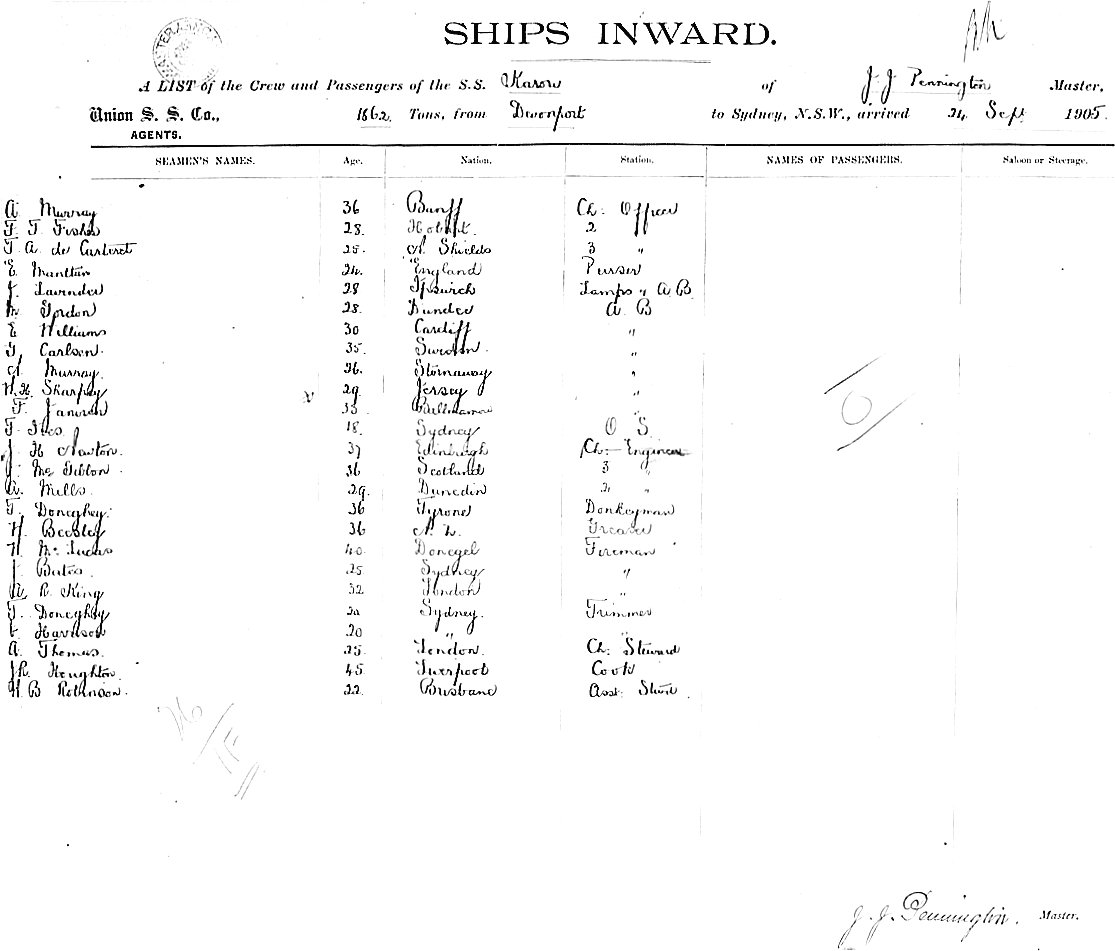 SHIPS INWARD.
A LIST of the Crew and Passengers of the S.S. of J. J. Pennington Master,
Union S. S. Co., 1862 Tons, from Devonport to Sydney, N.S.W., arrived 24 Sept 1905.
AGENTS.
SEAMEN'S NAMES. Age. Nation. Station. NAMES OF PASSENGERS. Saloon or Steerage.
A Murray 36 Banff Ch: Officer
F. T. Fisher 28. Hobart. 2 "
T. A. de Carteret 25. N. Shields 3 "
E. 24. England Purser
J. Lavender 28 Ipswich Lamps " A B
M. Gordon 28. Dundee A. B
E Williams 30 Cardiff "
G. Carlsen. 35. Sweden. "
A. Murray. 26. Stornaway "
H. H. Sharpey x 29. Jersey "
F. 33. "
F. Ives 18. Sydney O S.
J. H Newton. 37 Edinburgh Ch. Engineer
J. Mc Gibbon. 36 Scotland 3 "
A. Mills. 29. Dunedin 2 "
T. Doneghey. 36 Tyrone Donkeyman
H. Beesley 36 N. Z. Greaser
H. Mc 40. Donegel Fireman
J. Bates. 25 Sydney "
A. R. King 32 London "
T. Doneghey 20 Sydney. Trimmer
Harrison 20 " "
A. Thomas. 25. London. Ch: Steward
J.R. Houghton. 45. Liverpool Cook
H. B Robinson. 22. Brisbane Asst: Stwd
26
J. J. Pennington. Master.